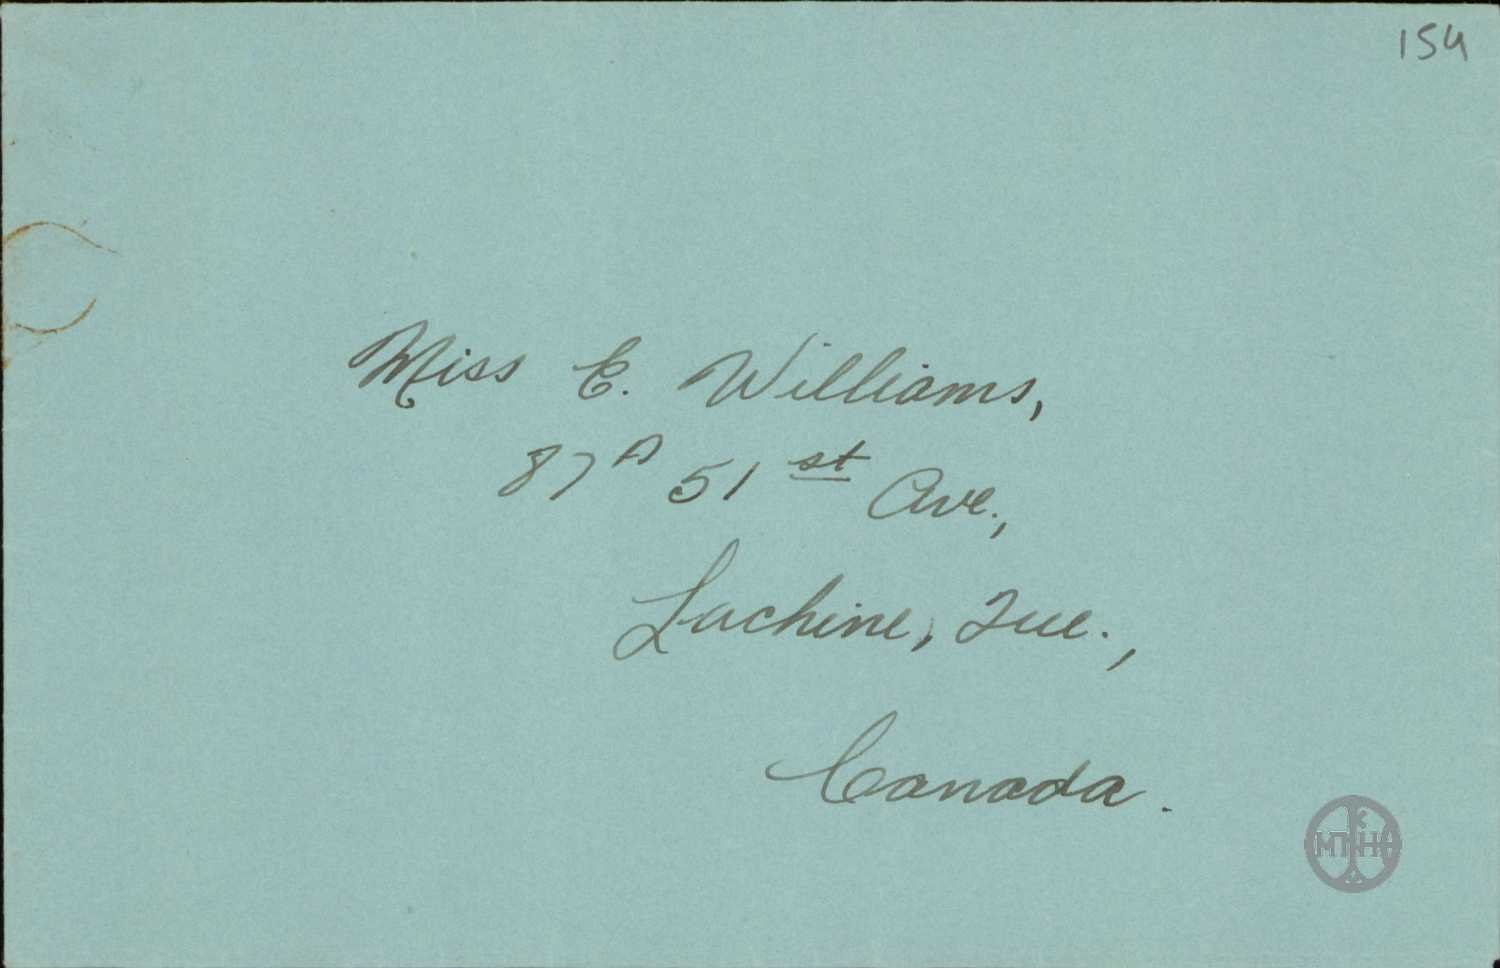 154
Miss E. Williams,
87A 51st Ave.,
Lachine, Que.,
Canada.